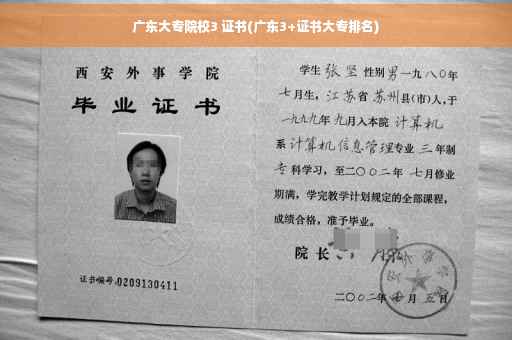 广东大专院校3 证书(广东3+证书大专排名)
西安外事学院
毕业证书
证书编号:0209130411
学生 张坚 性别 男 一九八〇年
七月生, 江苏省 苏州县(市)人,于
一九九九年 九月入本院 计算机
系 计算机信息管理专业 三 年制
专科学习,至二〇〇二年 七月修业
期满,学完教学计划规定的全部课程,
成绩合格,准予毕业。
院长
二〇〇二年 七月 五日